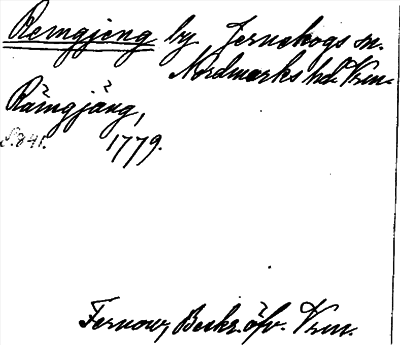 Remgjeng by Jernskogs sn.
Nordmarks hd. Vrm.
Rämgjäng,
S. 841. 1779.
Fernow, Beskr. öfv. Vrm.